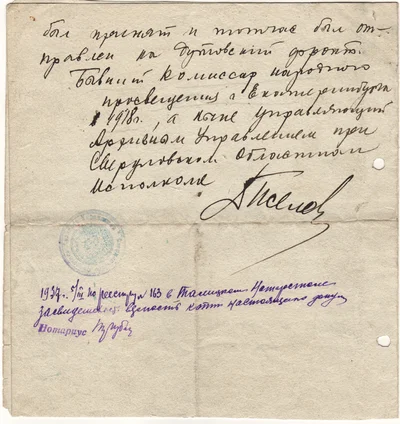 был принят и тотчас был от-
правлен на Дутовский фронт.
Бывший Комиссар народного
просвещения г. Екатеринбурга
в 1918г., а ныне управляющий
Архивным Управлением при
Свердловском Областном
Исполкоме
по реестру № 163 в Талицкой Нотариальной
верность копии настоящего
Нотариус